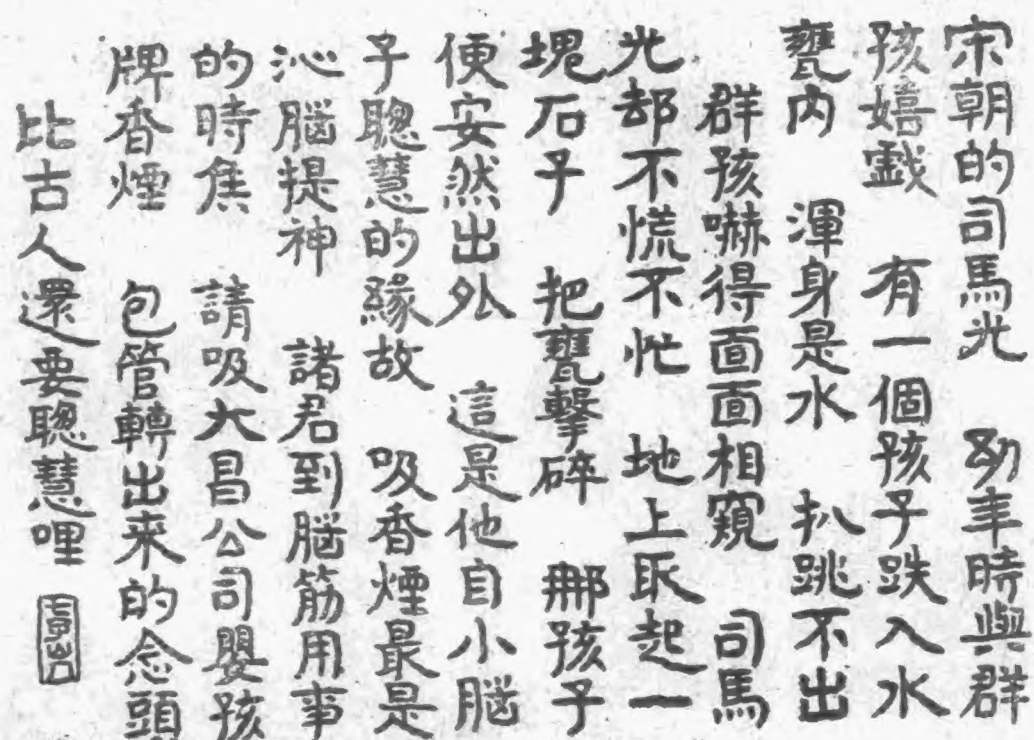 宋朝的司馬光　幼年時與群
孩嬉戲　有一個孩子跌入水
甕内　渾身是水　扒跳不出
群孩嚇得面面相窺　司馬
光却不慌不忙　地上取起一
塊石子　把甕擊碎　那孩子
便安然出外　這是他自小腦
子聰慧的緣故　吸香煙最是
沁腦提神　諸君到腦筋用事
的時焦　請吸大昌公司嬰孩
牌香煙　包管轉出来的念頭
比古人還要聰慧哩